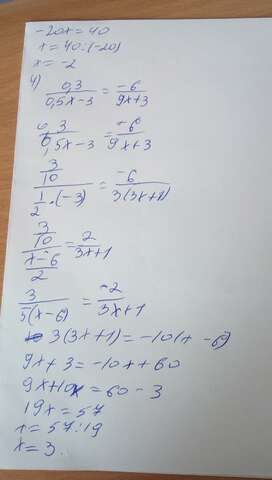 -20x = 40
x = 40 : (-20)
x = -2
4) 0,3/(0,5x-3) = -6/(9x+3)
0,3/(0,5x-3) = -6/(9x+3)
(3/10)/(1/2·(-3)) = -6/(3(3x+1))
(3/10)/((x-6)/2) = 2/(3x+1)
3/(5(x-6)) = -2/(3x+1)
3(3x+1) = -10(x-6)
9x+3 = -10x+60
9x+10x = 60-3
19x = 57
x = 57:19
x = 3.